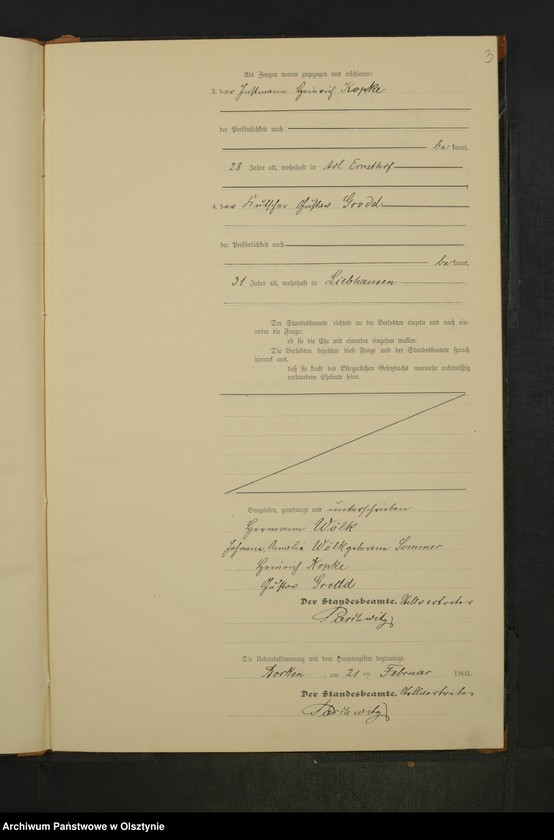 3
Als Zeugen waren zugezogen und erschienen:
3. der Instmann Heinrich Kopke
der Persönlichkeit nach
be kannt,
28 Jahre alt, wohnhaft in Adl Ernsthof
4. der Kutscher Gustav Grodd
der Persönlichkeit nach
be kannt,
31 Jahre alt, wohnhaft in Liebhausen
Der Standesbeamte richtete an die Verlobten einzeln und nach ein-
ander die Frage:
ob sie die Ehe mit einander eingehen wollen.
Die Verlobten bejahten diese Frage und der Standesbeamte sprach
hierauf aus,
daß sie kraft des Bürgerlichen Gesetzbuchs nunmehr rechtmäßig
verbundene Eheleute seien.
Vorgelesen, genehmigt und unterschrieben
Hermann Wölk
Johanne, Amalie Wölk geborene Sommer
Heinrich Kopke
Gustav Grodd
Der Standesbeamte. Stellvertreter
Die Uebereinstimmung mit dem Hauptregister beglaubigt.
am 21 ten Februar 1903.
Der Standesbeamte. Stellvertreter
Archiwum Państwowe w Olsztynie